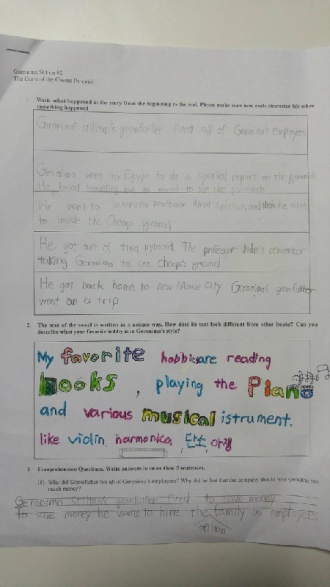 Geronimo Stilton #2
The Curse of the Cheese Pyramid
1. Write what happened in the story from the beginning to the end. Please make sure how each character felt when
something happened.
Geronimo stilton's grandfather fired all of Geronimo's employees
Geronimo went to Egypt to do a special report on the pyramid.
He went to interview Professor and then he went
to inside the Cheops pyramid
He got out of that pyramid. The professor didn't remember
taking Geronimo to the cheops's pyramid
He got back home to new Mouse City Geronimo's grandfather
went on a trip
2. The text of the novel is written in a unique way. How does its text look different from other books? Can you
describe what your favorite hobby is in Geronimo's style?
My favorite hobbies are reading
books, playing the Piano
and various musical istrument.
like violin, harmonica, 단소,
3. Comprehension Questions. Write answers in more than 2 sentences.
(1) Why did Grandfather fire all of Geronimo's employees? Why did he feel that the company should stop spending too
much money?
Geronimo Stilton's grandfather fired to save money
to save money he wants to hire the family as employee